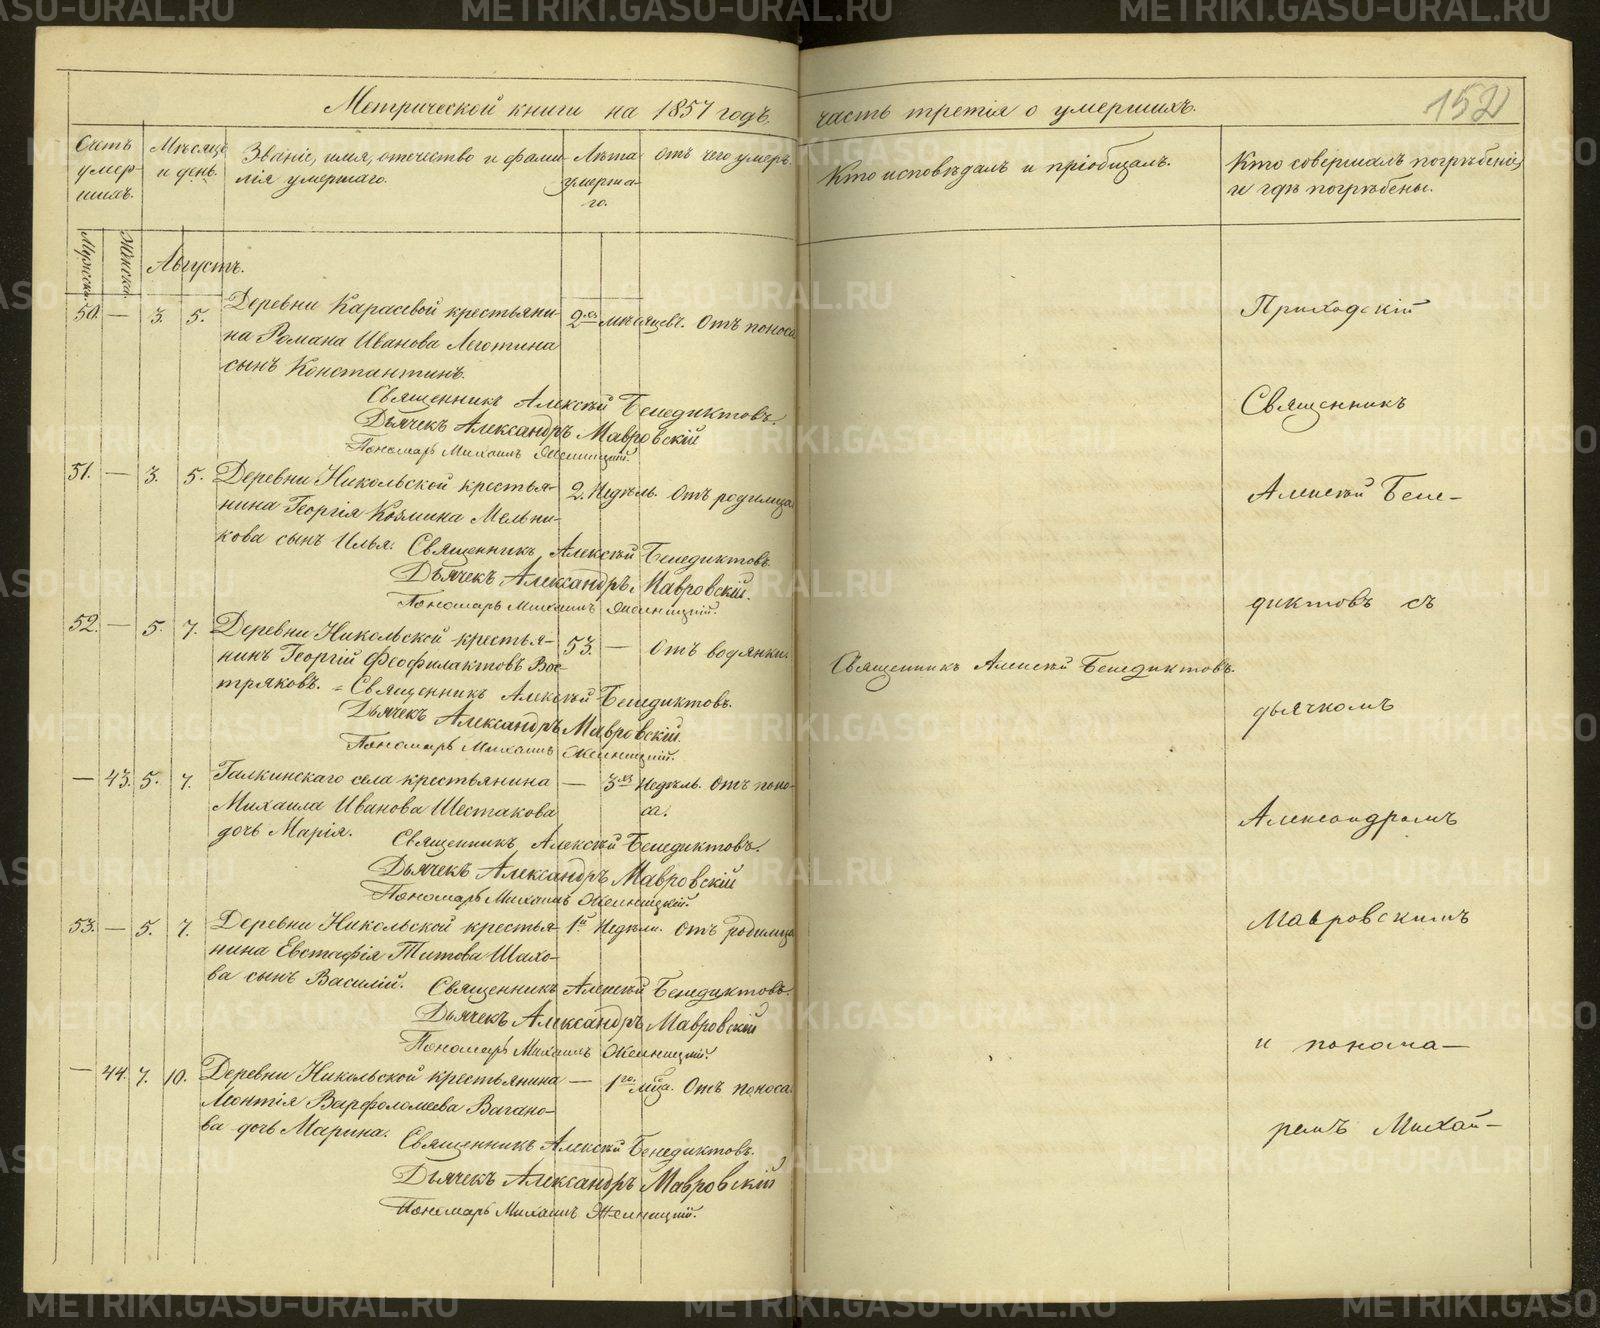 Метрической книги на 1857 годъ, часть третія о умершихъ.
152
Счетъ умершихъ.
Мѣсяцъ и день.
Званіе, имя, отчество и фамилія умершаго.
Лѣта умершаго.
Отъ чего умеръ.
Кто исповѣдалъ и пріобщалъ.
Кто совершалъ погребеніе, и гдѣ погребены.
Мужска.
Женска.
Августъ.
50. — 3. 5. Деревни Карасевой крестьяни- 2хъ мѣсяцевъ. Отъ поноса
на Романа Иванова Леготина
сынъ Константинъ.
Священникъ Алексѣй Бенедиктовъ.
Дьячекъ Александръ Мавровскій
Пономарь Михаилъ
51. — 3. 5. Деревни Никольской крестья- 2. Недѣль. Отъ родимца
нина Георгія Козмина Мельни-
кова сынъ Илья. Священникъ Алексѣй Бенедиктовъ.
Дьячекъ Александръ Мавровскій.
Пономарь Михаилъ
52. — 5. 7. Деревни Никольской крестья- 53. — Отъ водянки.
нинъ Георгій Феофилактовъ Вос-
тряковъ. Священникъ Алексѣй Бенедиктовъ.
Дьячекъ Александръ Мавровскій.
Пономарь Михаилъ
Священникъ Алексѣй Бенедиктовъ.
— 43. 5. 7. Галкинскаго села крестьянина — 3хъ Недѣль. Отъ поно-
Михаила Иванова Шестакова са.
дочь Марія. Священникъ Алексѣй Бенедиктовъ.
Дьячекъ Александръ Мавровскій
Пономарь Михаилъ
53. — 5. 7. Деревни Никольской крестья- 1й Недѣли. Отъ родимца
нина Евстафія Титова Шахо-
ва сынъ Василій. Священникъ Алексѣй Бенедиктовъ.
Дьячекъ Александръ Мавровскій
Пономарь Михаилъ
— 44. 7. 10. Деревни Никольской крестьянина — 1го. мца. Отъ поноса.
Леонтія Варфоломеева Вагано-
ва дочь Марина. Священникъ Алексѣй Бенедиктовъ.
Дьячекъ Александръ Мавровскій
Пономарь Михаилъ
Приходскій
Священникъ
Алексѣй Бене-
диктовъ съ
дьячкомъ
Александромъ
Мавровскимъ
и понома-
ремъ Михай-
METRIKI.GASO-URAL.RU